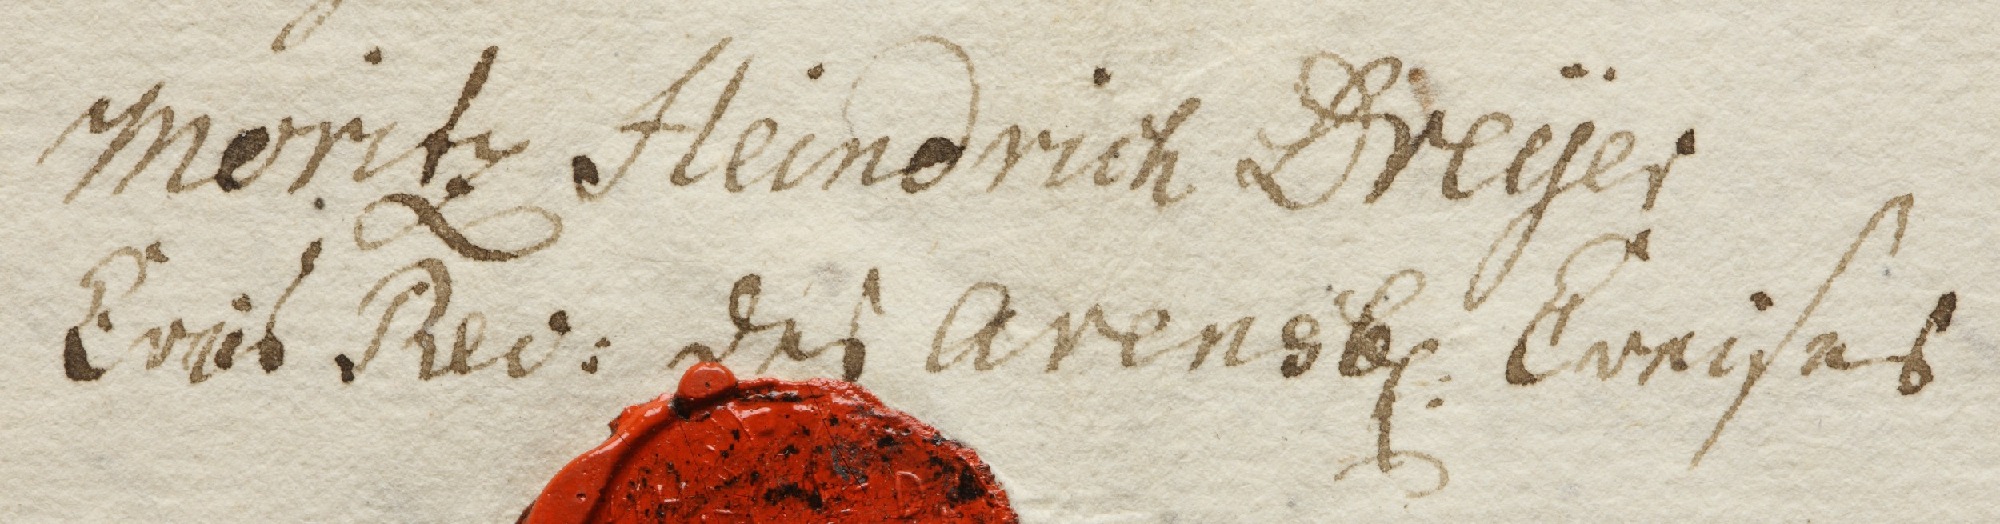 Moritz Heindrich Dreÿer
Creis Rev: des Arensb: Creises